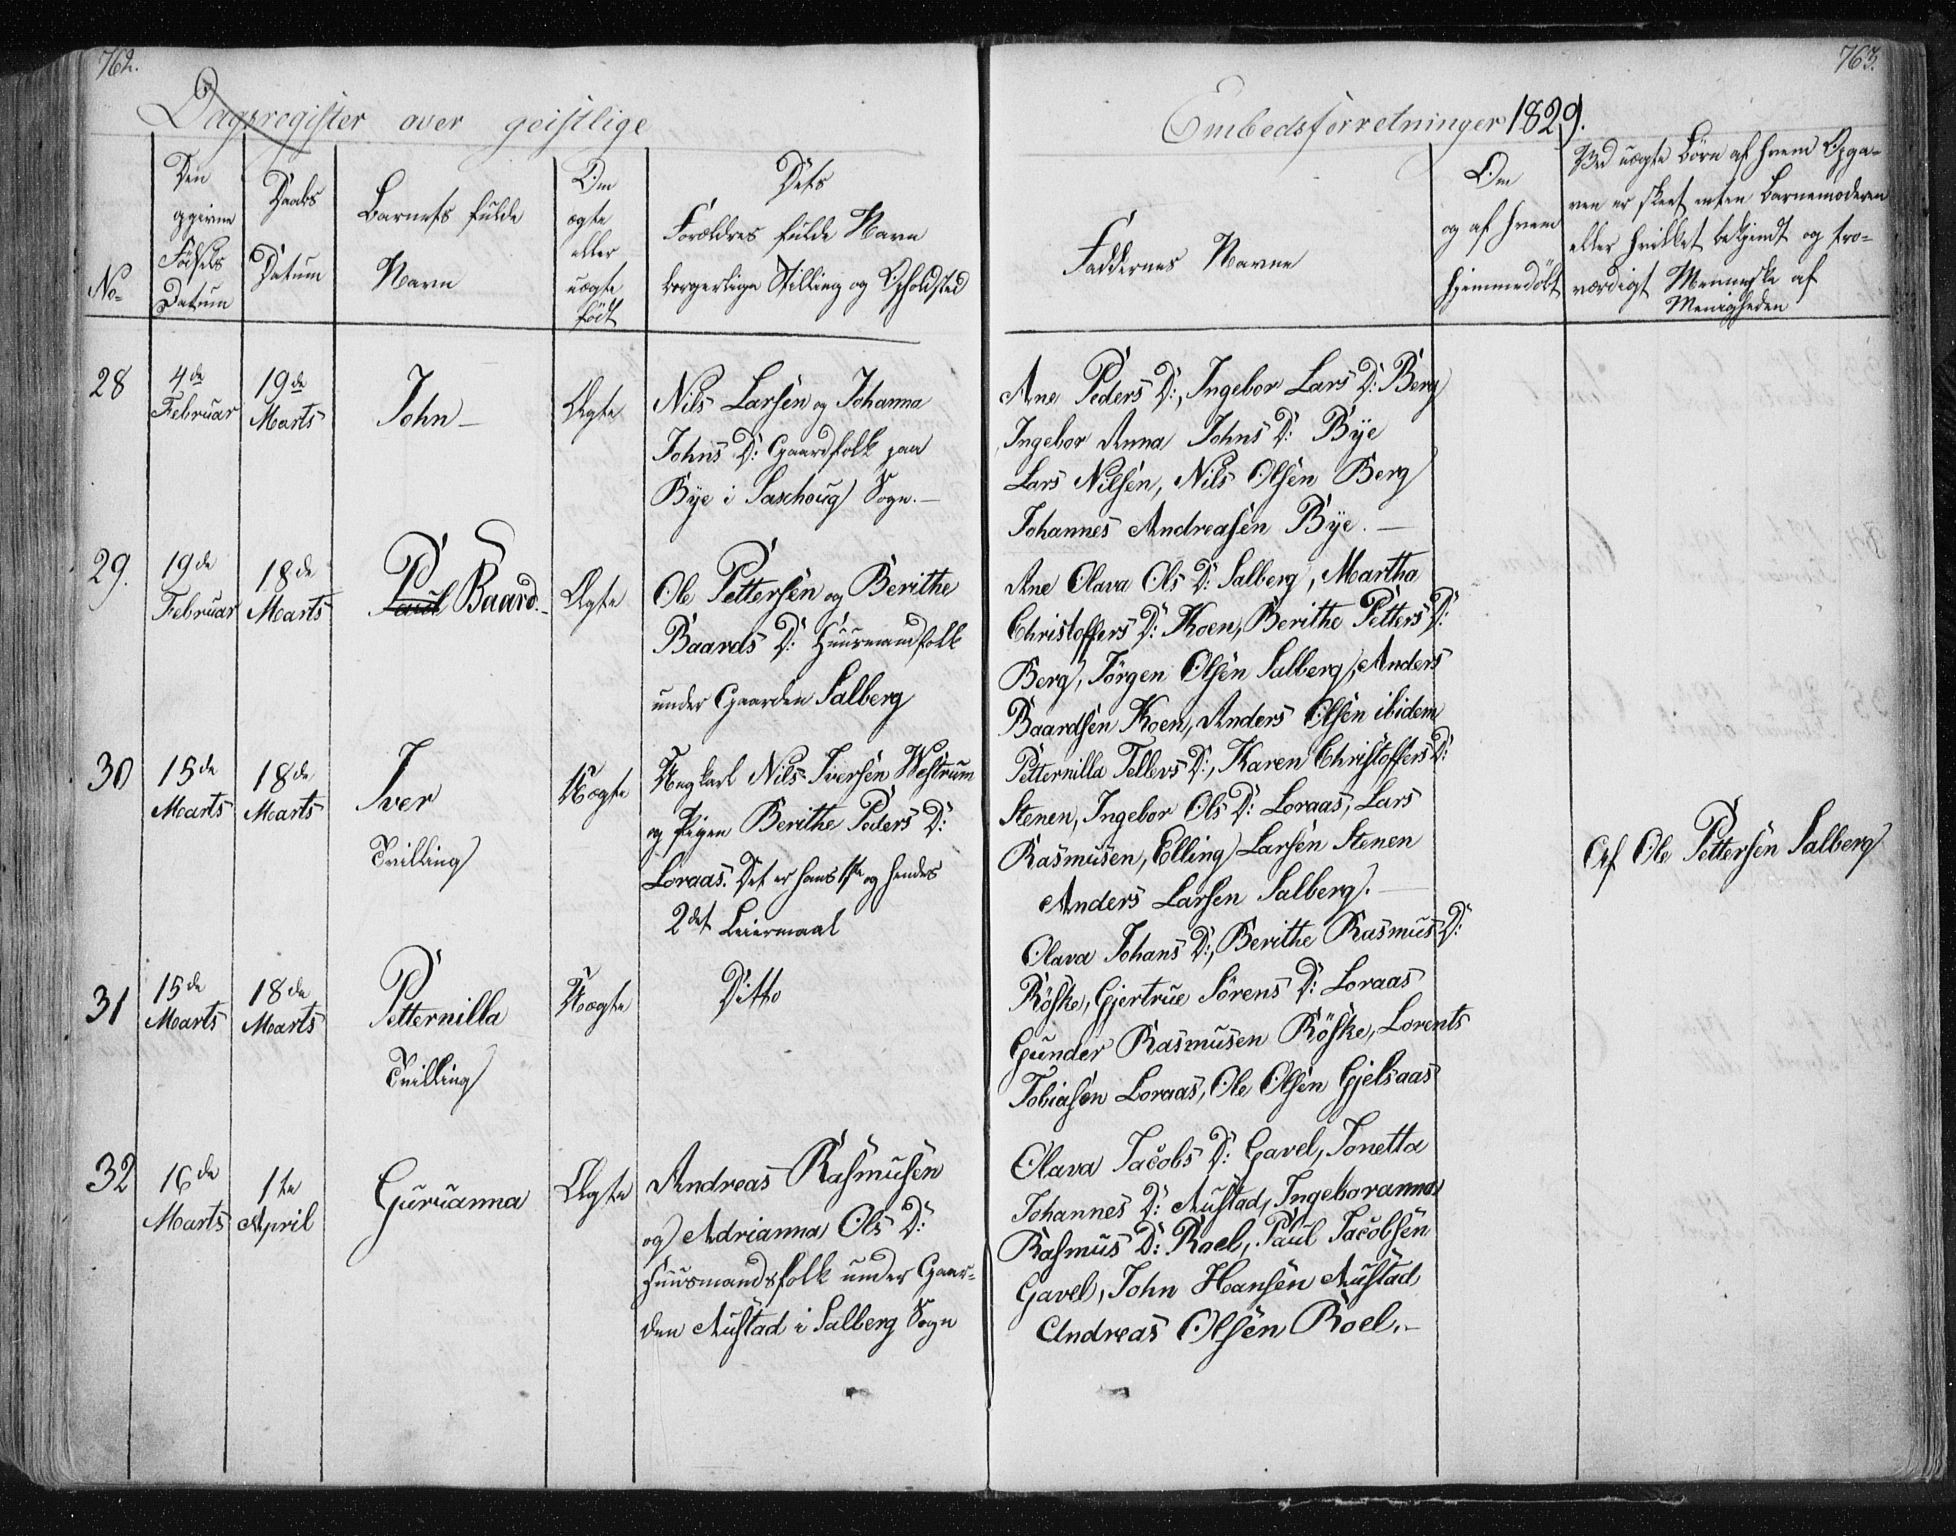 762.
763.
Dagsregister over geistlige
Embedsforretninger 1829.
No
Den
opgivne
Födsels
Datum
Daabs
Datum
Barnets fulde
Navn
Om
ægte
eller
uægte
födt
Dets
Forældres fulde Navn
borgerlige Stilling og Opholdsted
Faddernes Navne
Om
og af hvem
hjemmedöbt
Ved uægte Börn af hvem Opga-
ven er skeet enten Barnemoderen
eller hvilket bekjendt og tro-
værdigt Menneske af
Menigheden
28
4de
Februar
19de
Marts
John
Ægte
Nils Larsen og Johanna
Johns D: Gaardfolk paa
Bye i Saxhoug Sogn.
Ane Peders D:, Ingebor Lars D: Berg
Ingebor Anna Johns D: Bÿe
Lars Nilsen, Nils Olsen Berg
Johannes Andreasen Bÿe.
29.
19de
Februar
18de
Marts
Paul Baard.
Ægte
Ole Pettersen og Berithe
Baards D: Huusmandfolk
under Gaarden Salberg
Ane Olava Ols D: Salberg, Martha
Christoffers D: Koen, Berithe Petters D:
Berg, Jörgen Olsen Salberg, Anders
Baardsen Koen, Anders Olsen ibidem
30
15de
Marts
18de
Marts
Iver
Tvilling
Uægte
Ungkarl Nils Iversen Westrum
og Pigen Berithe Peders D:
Loraas. Det er hans 1ste og hendes
2det Leiermaal
Petternilla Tellevs D:, Karen Christoffers D:
Stenen, Ingebor Ols D: Loraas, Lars
Rasmusen, Elling Larsen Stenen
Anders Larsen Salberg.
Af Ole Pettersen Salberg
31
15de
Marts
18de
Marts
Petternilla
Tvilling
Uægte
Ditto
Olava Johans D:, Berithe Rasmus D:
Röske, Gjertrue Sörens D: Loraas
Gunder Rasmusen Röske, Lorents
Tobiasen Loraas, Ole Olsen Gjelsaas
32
16de
Marts
1te
April
Guruanna
Ægte
Andreas Rasmusen
og Adrianna Ols D:
Huusmandsfolk under Gaar-
den Austad i Salberg Sogn
Olava Jacobs D: Gavel, Jonetta
Johannes D: Austad, Ingeboranna
Rasmus D: Roel, Paul Jacobsen
Gavel, John Hansen Austad
Andreas Olsen Roel.